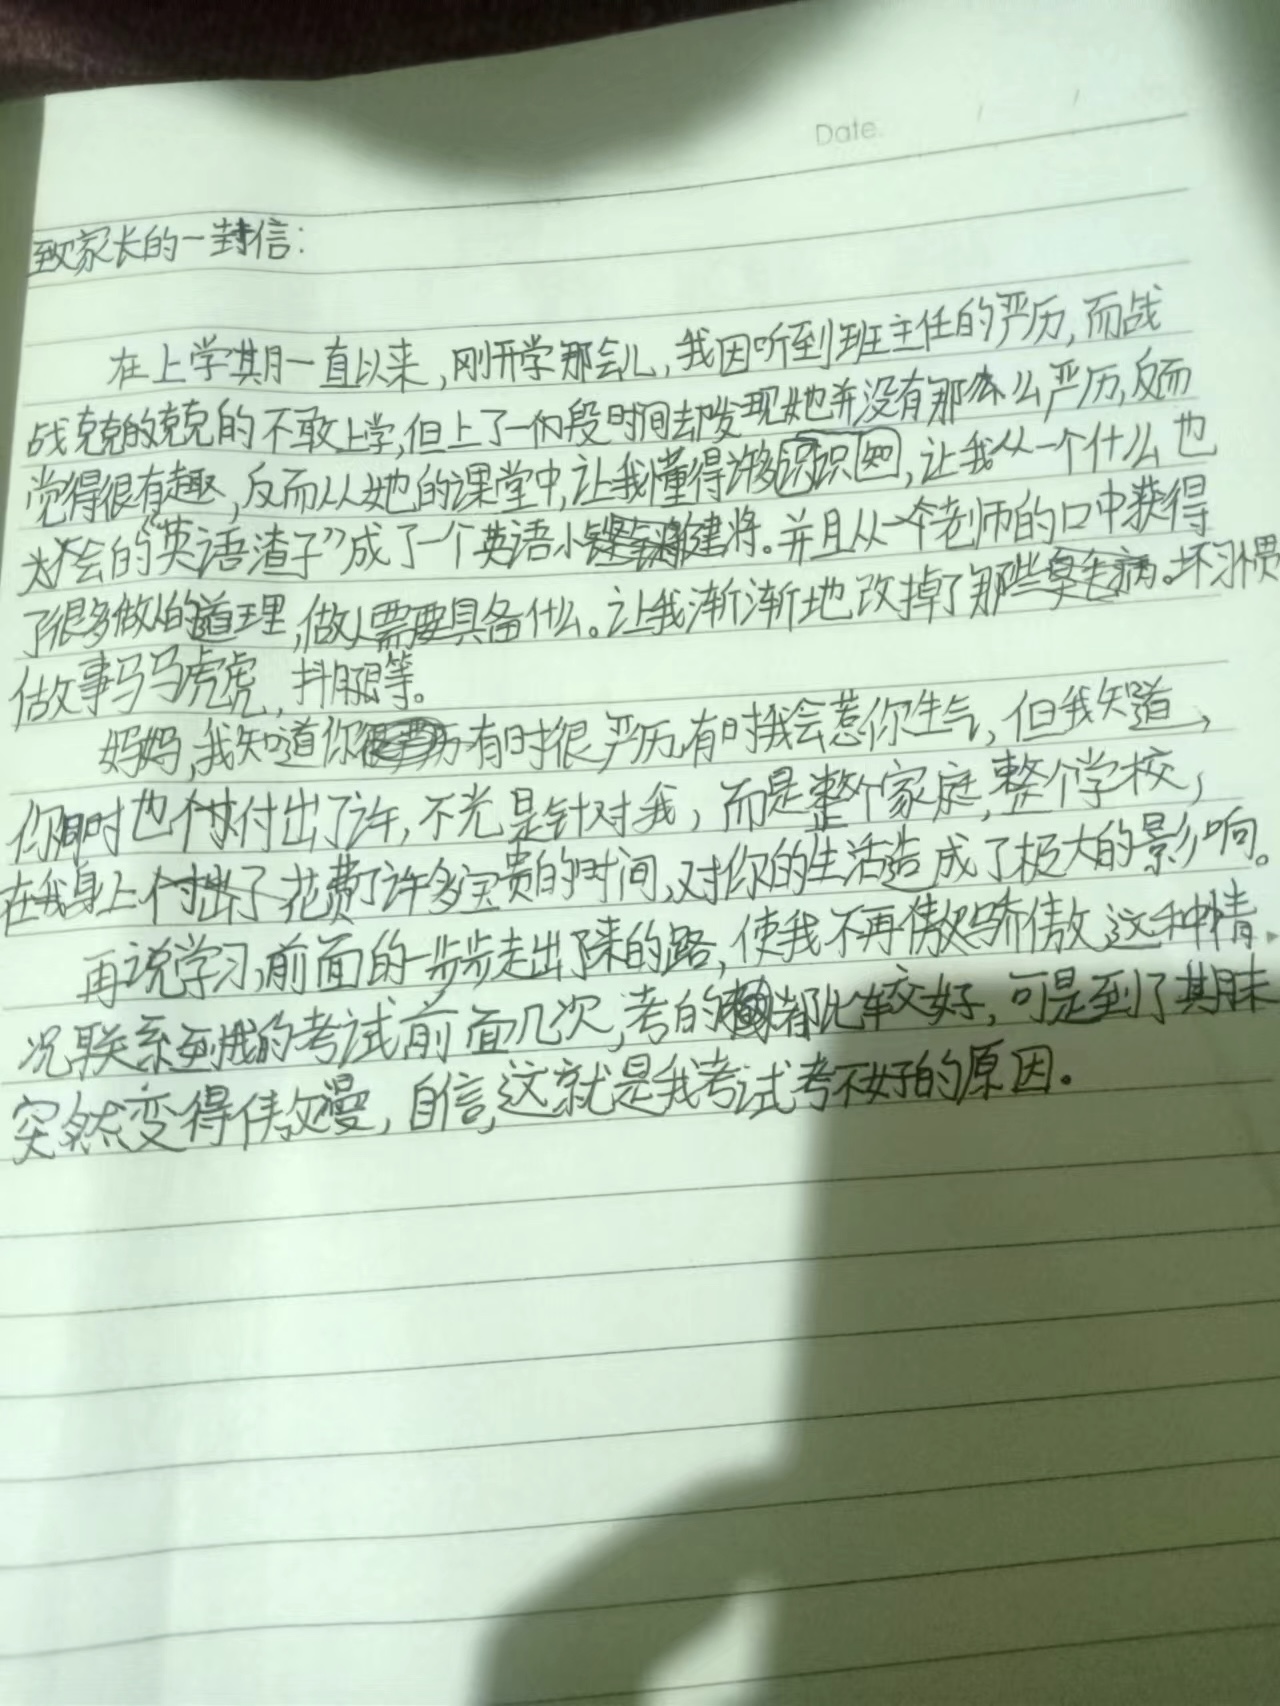 Date.
致家长的一封信:
在上学期一直以来,刚开学那会儿,我因听到班主任的严历,而战
战克克的克克的不敢上学,但上了一段时间却发现她并没有那么严历,反而
觉得很有趣,反而从她的课堂中,让我懂得许多识知,让我从一个什么也
不会的“英语渣子”成了一个英语小建将。并且从一个老师的口中获得
了很多做人的道理,做人需要具备什么。让我渐渐地改掉了那些臭毛病。坏习惯
做事马马虎虎,抖腿等。
妈妈,我知道你有时很严历,有时我会惹你生气,但我知道,
你同时也付出了许,不光是针对我,而是整个家庭,整个学校,
在我身上花费了许多宝贵的时间,对你的生活造成了极大的影响。
再说学习,前面的一步步走出来的路,使我不再骄傲,这种情
况联系到我的考试前面几次,考的都比较好,可是到了其月末
突然变得傲慢,自信,这就是我考试考不好的原因。